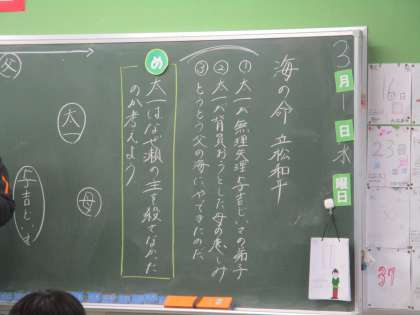 3月1日水曜日
海の命 立松和平
① 太一が無理矢理与吉じいさの弟子
② 太一が背負おうとした母の悲しみ
③ とうとう父の海にやってきたのだ
め
太一はなぜ瀬の主を殺さなかった
のか考えよう
父
太一
母
与吉じいさ
16
23
37